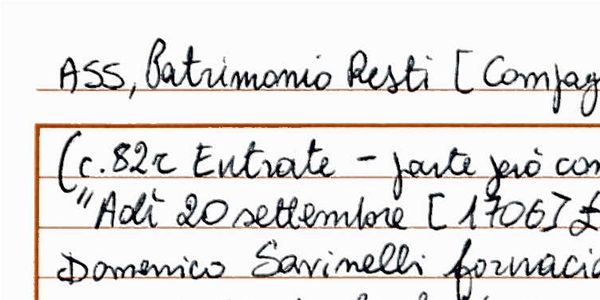 ASS, Patrimonio Resti [Compag
(c.82r Entrate - parte però con
"Adì 20 settembre [1706] £
Domenico Savinelli fornacia